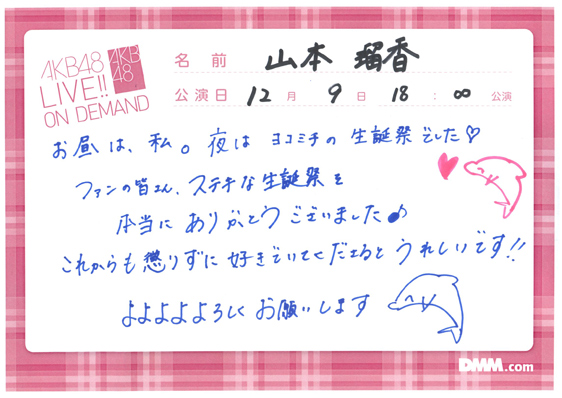 AKB48
LIVE!!
ON DEMAND
AKB
48
名前 山本 瑠香
公演日 12月 9日 18:00 公演
お昼は、私。夜は ヨコミチの 生誕祭でした♡
ファンの皆さん、ステキな生誕祭を
本当に ありがとうございました♪
これからも懲りずに 好きでいてくださるとうれしいです!!
よよよよよろしくお願いします
DMM.com